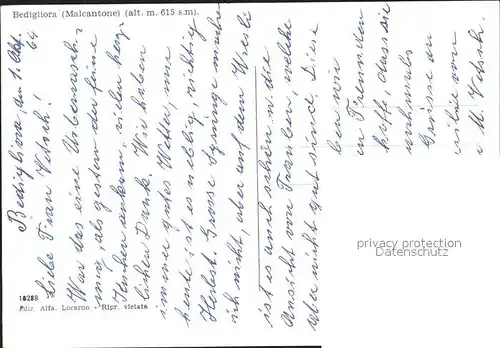 Bedigliora (Malcantone) (alt. m. 615 s.m).
Bedigliora, den 1. Okt.
64
Liebe Frau Vetsch!
War das eine Überrasch-
ung, als gestern der feine
Kuchen ankam, vielen herz-
lichen Dank. Wir haben
immer gutes Wetter, nur
heute ist es neblig, richtig
Herbst. Grosse Sprünge mache
ich nicht, aber auf dem
ist es auch schön u. die
Ansicht von Trauben, welche
aber nicht gut sind. Diese
ben wir
in
hoffe, dass sie
nochmals
Grüsse an
von
u M. Vetsch.
10288
Ediz. Alfa. Locarno - Ripr. vietata
privacy protection
Datenschutz